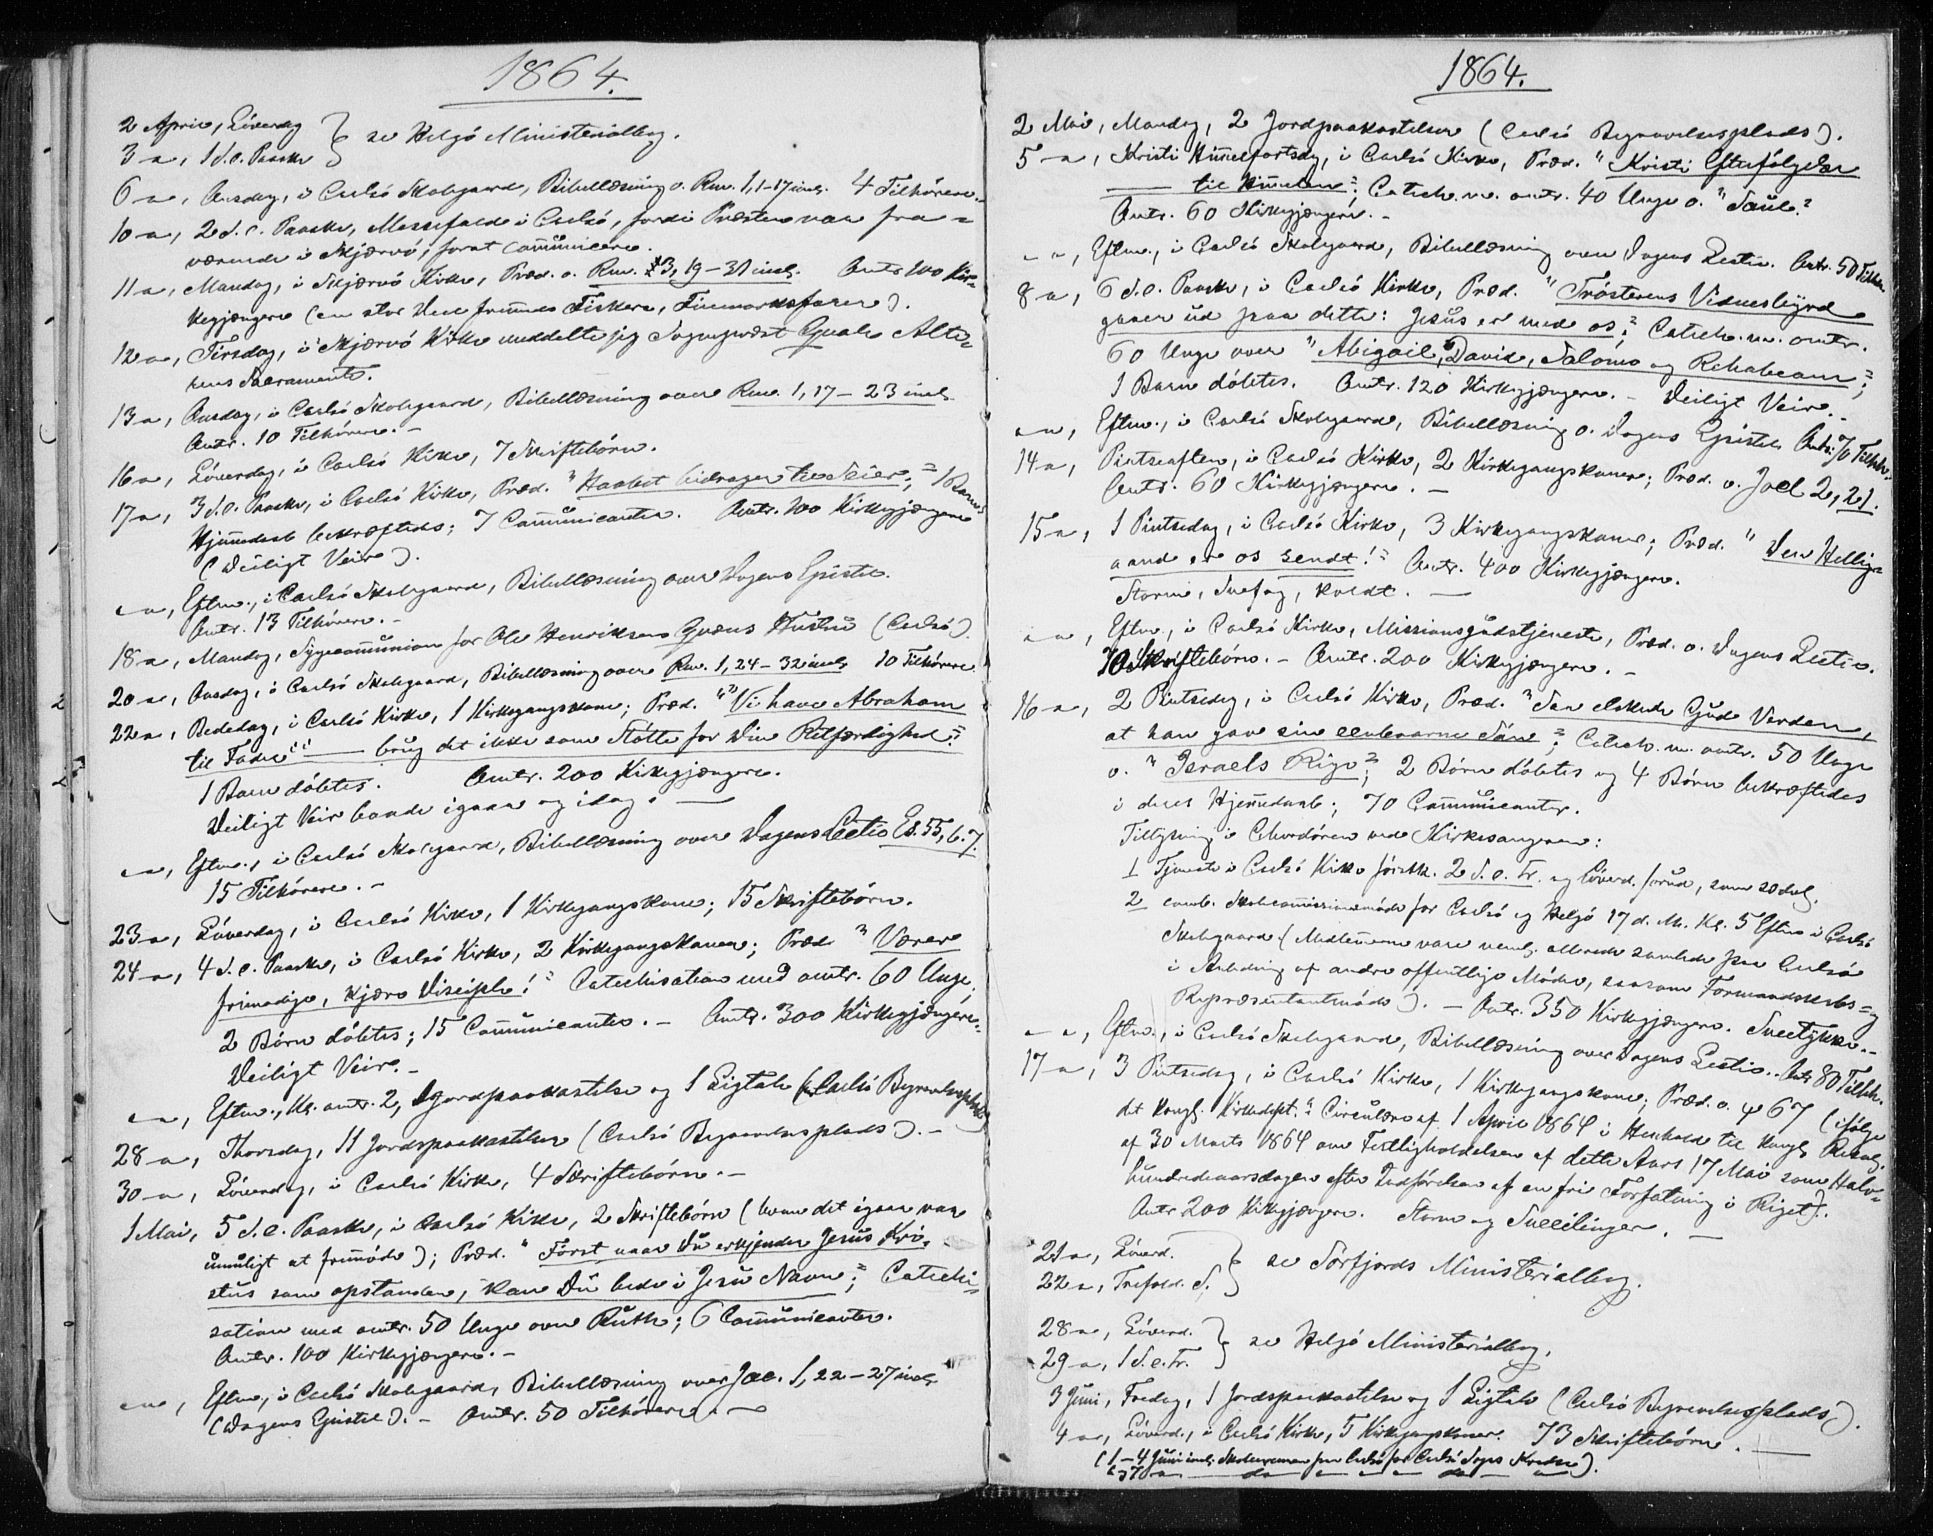 1864.
2 April, Löverdag } se Helgö Ministerialbog.
3 - a, 1 S. e. Paaske
6 - a, Onsdag, i Carlsö Skolegaard, Bibellæsning o. Rom. 1, 1-17 incl. 4 Tilhörere.
10 - a, 2 S. e. Paaske, Messefald i Carlsö, fordi Præsten var fra=
værende i Skjærvö, forat communicere.
11 - a, Mandag, i Skjærvö Kirke, Præd. o. Rom. 3, 19-31 incl. Omtr. 100 Kir=
kegjængere (en stor Deel fremmede Fiskere, Finmarksfarer).
12 - a, Tirsdag, i Skjærvö Kirke meddelte jeg Sognepræst Qvale Alte=
rens Sacramente.
13 - a, Onsdag, i Carlsö Skolegaard, Bibellæsning over Rom. 1, 17-23 incl.
Omtr. 10 Tilhörere. -
16 - a, Löverdag, i Carlsö Kirke, 7 Skriftebörn.
17 - a, 3 S. e. Paaske, i Carlsö Kirke, Præd. "Haabet bidrager til Seier;" 1 Barns
Hjemmedaab bekræftedes; 7 Communicanter. Omtr. 100 Kirkegjængere
(Deiligt Veir).
- a, Eftm., i Carlsö Skolegaard, Bibellæsning over Dagens Epistel.
Omtr. 13 Tilhörere. -
18 - a, Mandag, Sygecommunion for Ole Henriksens Qvæns Hustru (Carlsö).
20 - a, Onsdag, i Carlsö Skolegaard, Bibellæsning over Rom. 1, 24-32 incl. 10 Tilhörere.
22 - a, Bededag, i Carlsö Kirke, 1 Kirkegangskone; Præd. "Vi have Abraham
til Fader" — brug det ikke som Stötte for Din Retfærdighed."
1 Barn döbtes. Omtr. 200 Kirkegjængere.
Deiligt Veir baade igaar og idag. —
- a, Eftm., i Carlsö Skolegaard, Bibellæsning over Dagens Lectie Es. 55, 6.7.
15 Tilhörere. -
23 - a, Löverdag, i Carlsö Kirke, 1 Kirkegangskone; 15 Skriftebörn.
24 - a, 4 S. e. Paaske, i Carlsö Kirke, 2 Kirkegangskoner; Præd. "Værer
frimodige, kjære Disciple!" Catechisation med omtr. 60 Unge.
2 Börn döbtes; 15 Communicanter. - Omtr. 300 Kirkegjængere.
Deiligt Veir. -
- a, Eftm., Kl. omtr. 2, Jordpaakastelse og 1 Ligtale (Carlsö Begravelsesplads)
28 - a, Thorsdag, 11 Jordspaakastelser (Carlsö Begravelsesplads). -
30 - a, Löverdag, i Carlsö Kirke, 4 Skriftebörn. -
1 Mai, 5 S. e. Paaske, i Carlsö Kirke, 2 Skriftebörn (hvem det igaar var
umuligt at fremmöde); Præd. "Först naar Du erkjender Jesus Kri=
stus som opstanden, kan Du bede i Jesu Navn;" Catechi=
sation med omtr. 50 Unge over Ruth; 6 Communicanter.
Omtr. 100 Kirkegjængere. -
- a, Eftm., i Carlsö Skolegaard, Bibellæsning over Jac. 1, 22-27 incl.
(Dagens Epistel). - Omtr. 50 Tilhörere. —
1864.
2 Mai, Mandag, 2 Jordpaakastelser (Carlsö Begravelsesplads).
5 - a, Kristi Himmelfartsdag, i Carlsö Kirke, Præd. "Kristi Efterfölgelse
— til Himmelen;" Catech. m. omtr. 40 Unge o. "Saul."
Omtr. 60 Kirkegjængere. -
- a, Eftm., i Carlsö Skolegaard, Bibellæsning over Dagens Lectie. Omtr. 50 Tilhör.
8 - a, 6 S. e. Paaske, i Carlsö Kirke, Præd. "Trösterens Vidnesbyrd
gaaer ud paa dette: Jesus er med os;" Catech. m. omtr.
60 Unge over "Abigail, David, Salomo og Rehabeam;"
1 Barn döbtes. Omtr. 120 Kirkegjængere. - Deiligt Veir. -
- a, Eftm., i Carlsö Skolegaard, Bibellæsning o. Dagens Epistel. Omtr. 70 Tilhör.
14 - a, Pintseaften, i Carlsö Kirke, 2 Kirkegangskoner; Præd. o. Joel 2, 21.
Omtr. 60 Kirkegjængere. -
15 - a, 1 Pintsedag, i Carlsö Kirke, 3 Kirkegangskoner; Præd. "Den Hellig=
aand er os sendt!" Omtr. 400 Kirkegjængere.
Storm, Snefog, koldt. —
- a, Eftm., i Carlsö Kirke, Missionsgudstjeneste, Præd. o. Dagens Lectie.
70 Skriftebörn. - Omtr. 200 Kirkegjængere. -
16 - a, 2 Pintsedag, i Carlsö Kirke, Præd. "Saa elskede Gud Verden,
at han gav sin eenbaarne Sön;" Catech. m. omtr. 50 Unge
o. "Israels Rige"; 2 Börn döbtes og 4 Börn bekræftedes
i deres Hjemmedaab; 70 Communicanter.
Tillysning i Chordören ved Kirkesangeren:
1 Tjeneste i Carlsö Kirke förstk. 2 S. e. Tr. og Löverd. forud, som sædvl.
2 comb. Skolecommissionsmöde for Carlsö og Helgö 17 d. M. Kl. 5 Eftm i Carlsö
Skolegaard (Medlemmerne vare nemlig allerede samlede paa Carlsö
i Anledning af andre offentlige Möder, saasom Formandskabs= og
Repræsentantmöde). - Omtr. 350 Kirkegjængere. Sneetykke. -
- a, Eftm., i Carlsö Skolegaard, Bibellæsning over Dagens Lectie. Omtr. 80 Tilhör.
17 - a, 3 Pintsedag, i Carlsö Kirke, 1 Kirkegangskone; Præd. o. ψ 67 (ifölge
det Kongl. Kirkedept.s Circulære af 1 April 1864 i Henhold til Kongl. Resol.
af 30 Marts 1864 om Festligholdelsen af dette Aars 17 Mai som Halv=
hundredeaarsdagen efter Indförelsen af en fri Forfatning i Riget).
Omtr. 200 Kirkegjængere. Storm og Sneeilinger. —
21 - a, Löverd. } se Sörfjords Ministerialbog.
22 - a, Trefold. S.
28 - a, Löverd. } se Helgö Ministerialbog.
29 - a, 1 S. e. Tr.
3 Juni, Fredag, 1 Jordspaakastelse og 1 Ligtale (Carlsö Begravelsesplads).
4 - a, Löverd., i Carlsö Kirke, 5 Kirkegangskoner. 73 Skriftebörn. —
(1-4 Juni incl. Skoleexamen paa Carlsö for Carlsö Sogns Kredse).